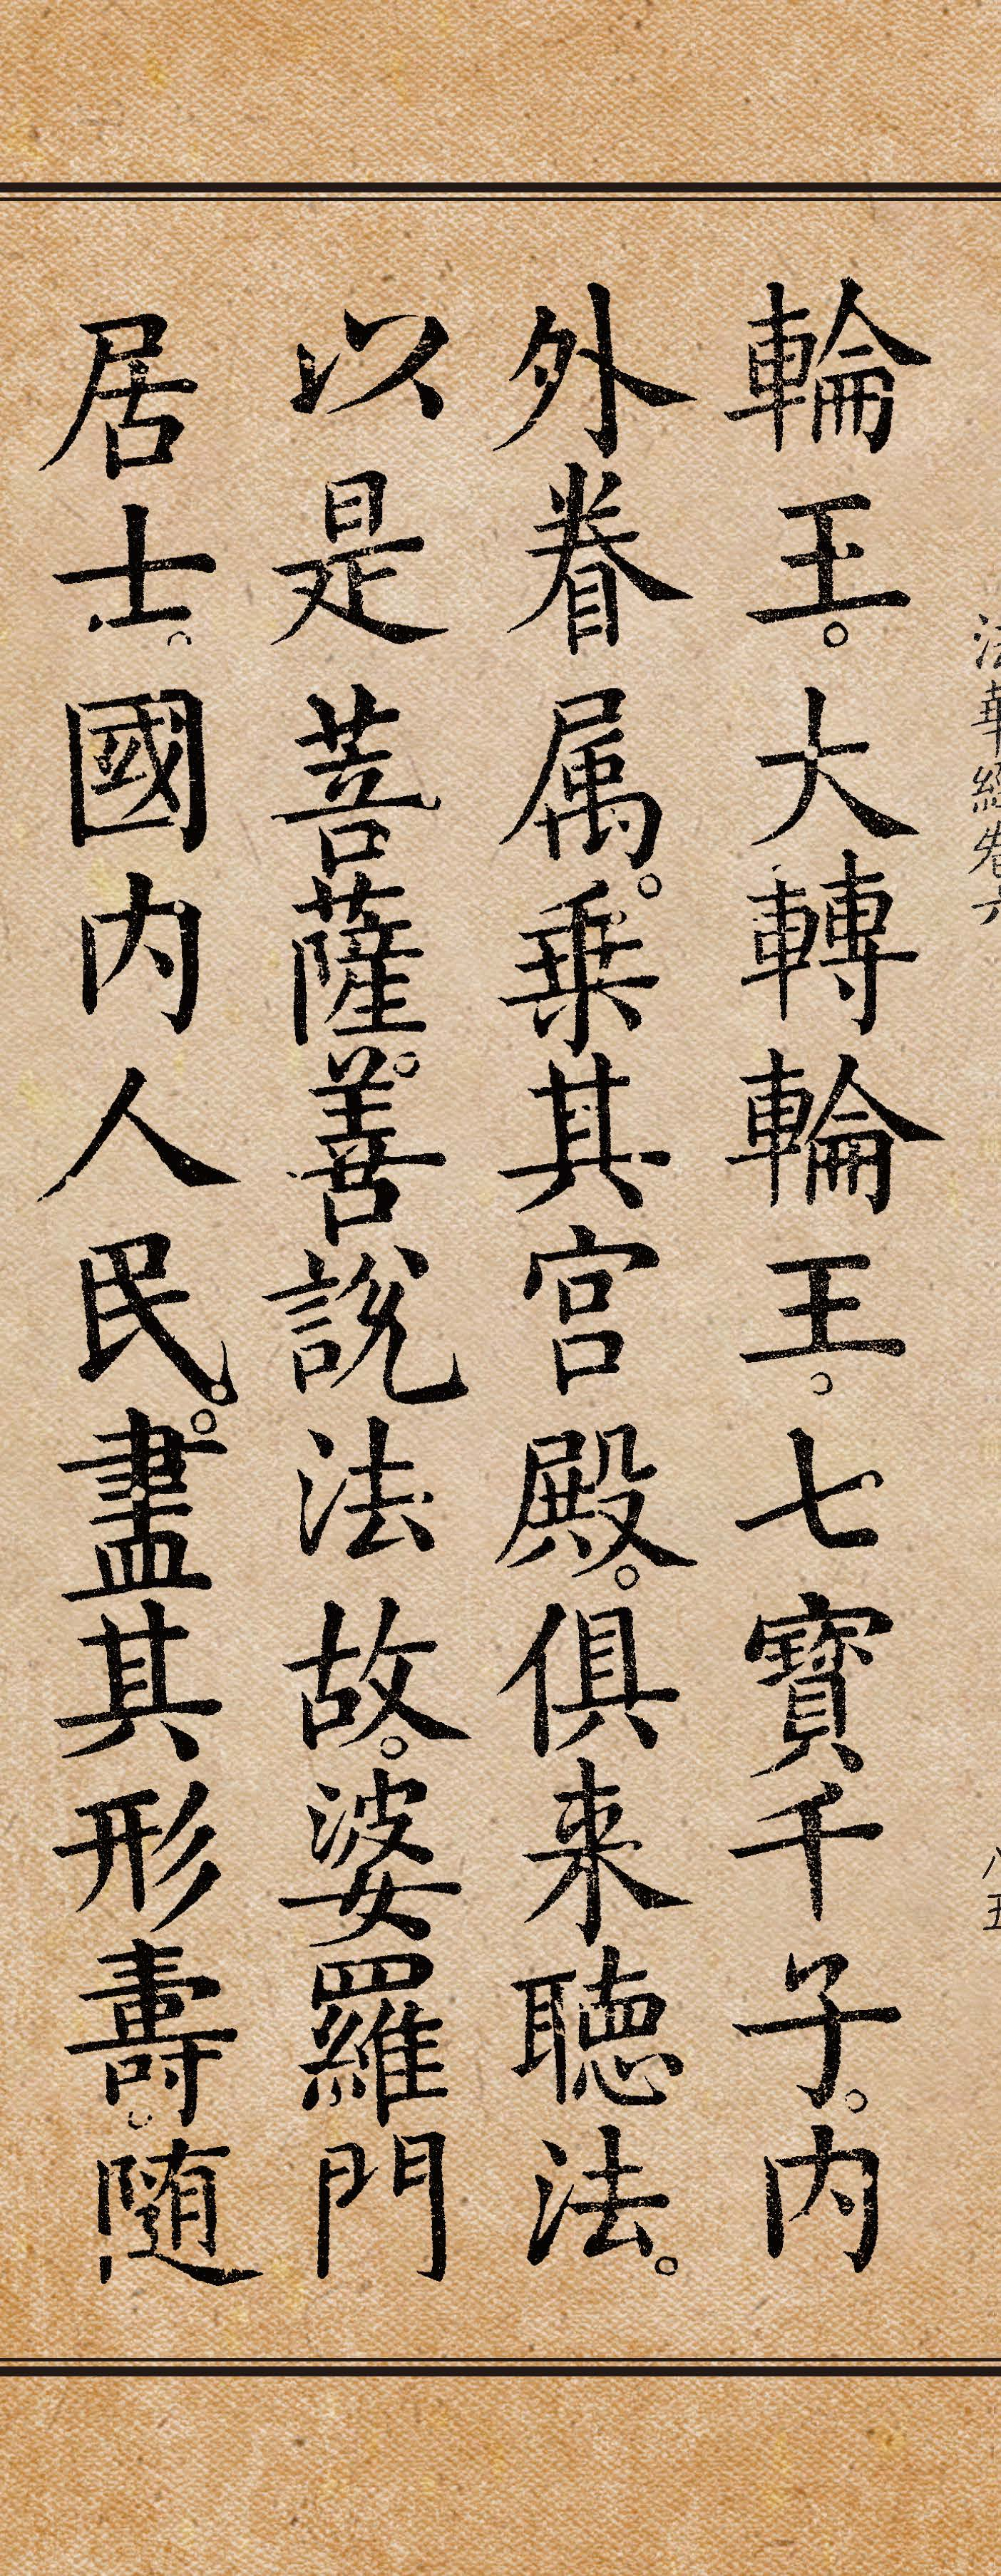 法華經卷六
八五
輪王。大轉輪王。七寶千子。內
外眷属。乗其宮殿。俱来聽法。
以是菩薩。善說法故。婆羅門
居士。國內人民。盡其形壽。随